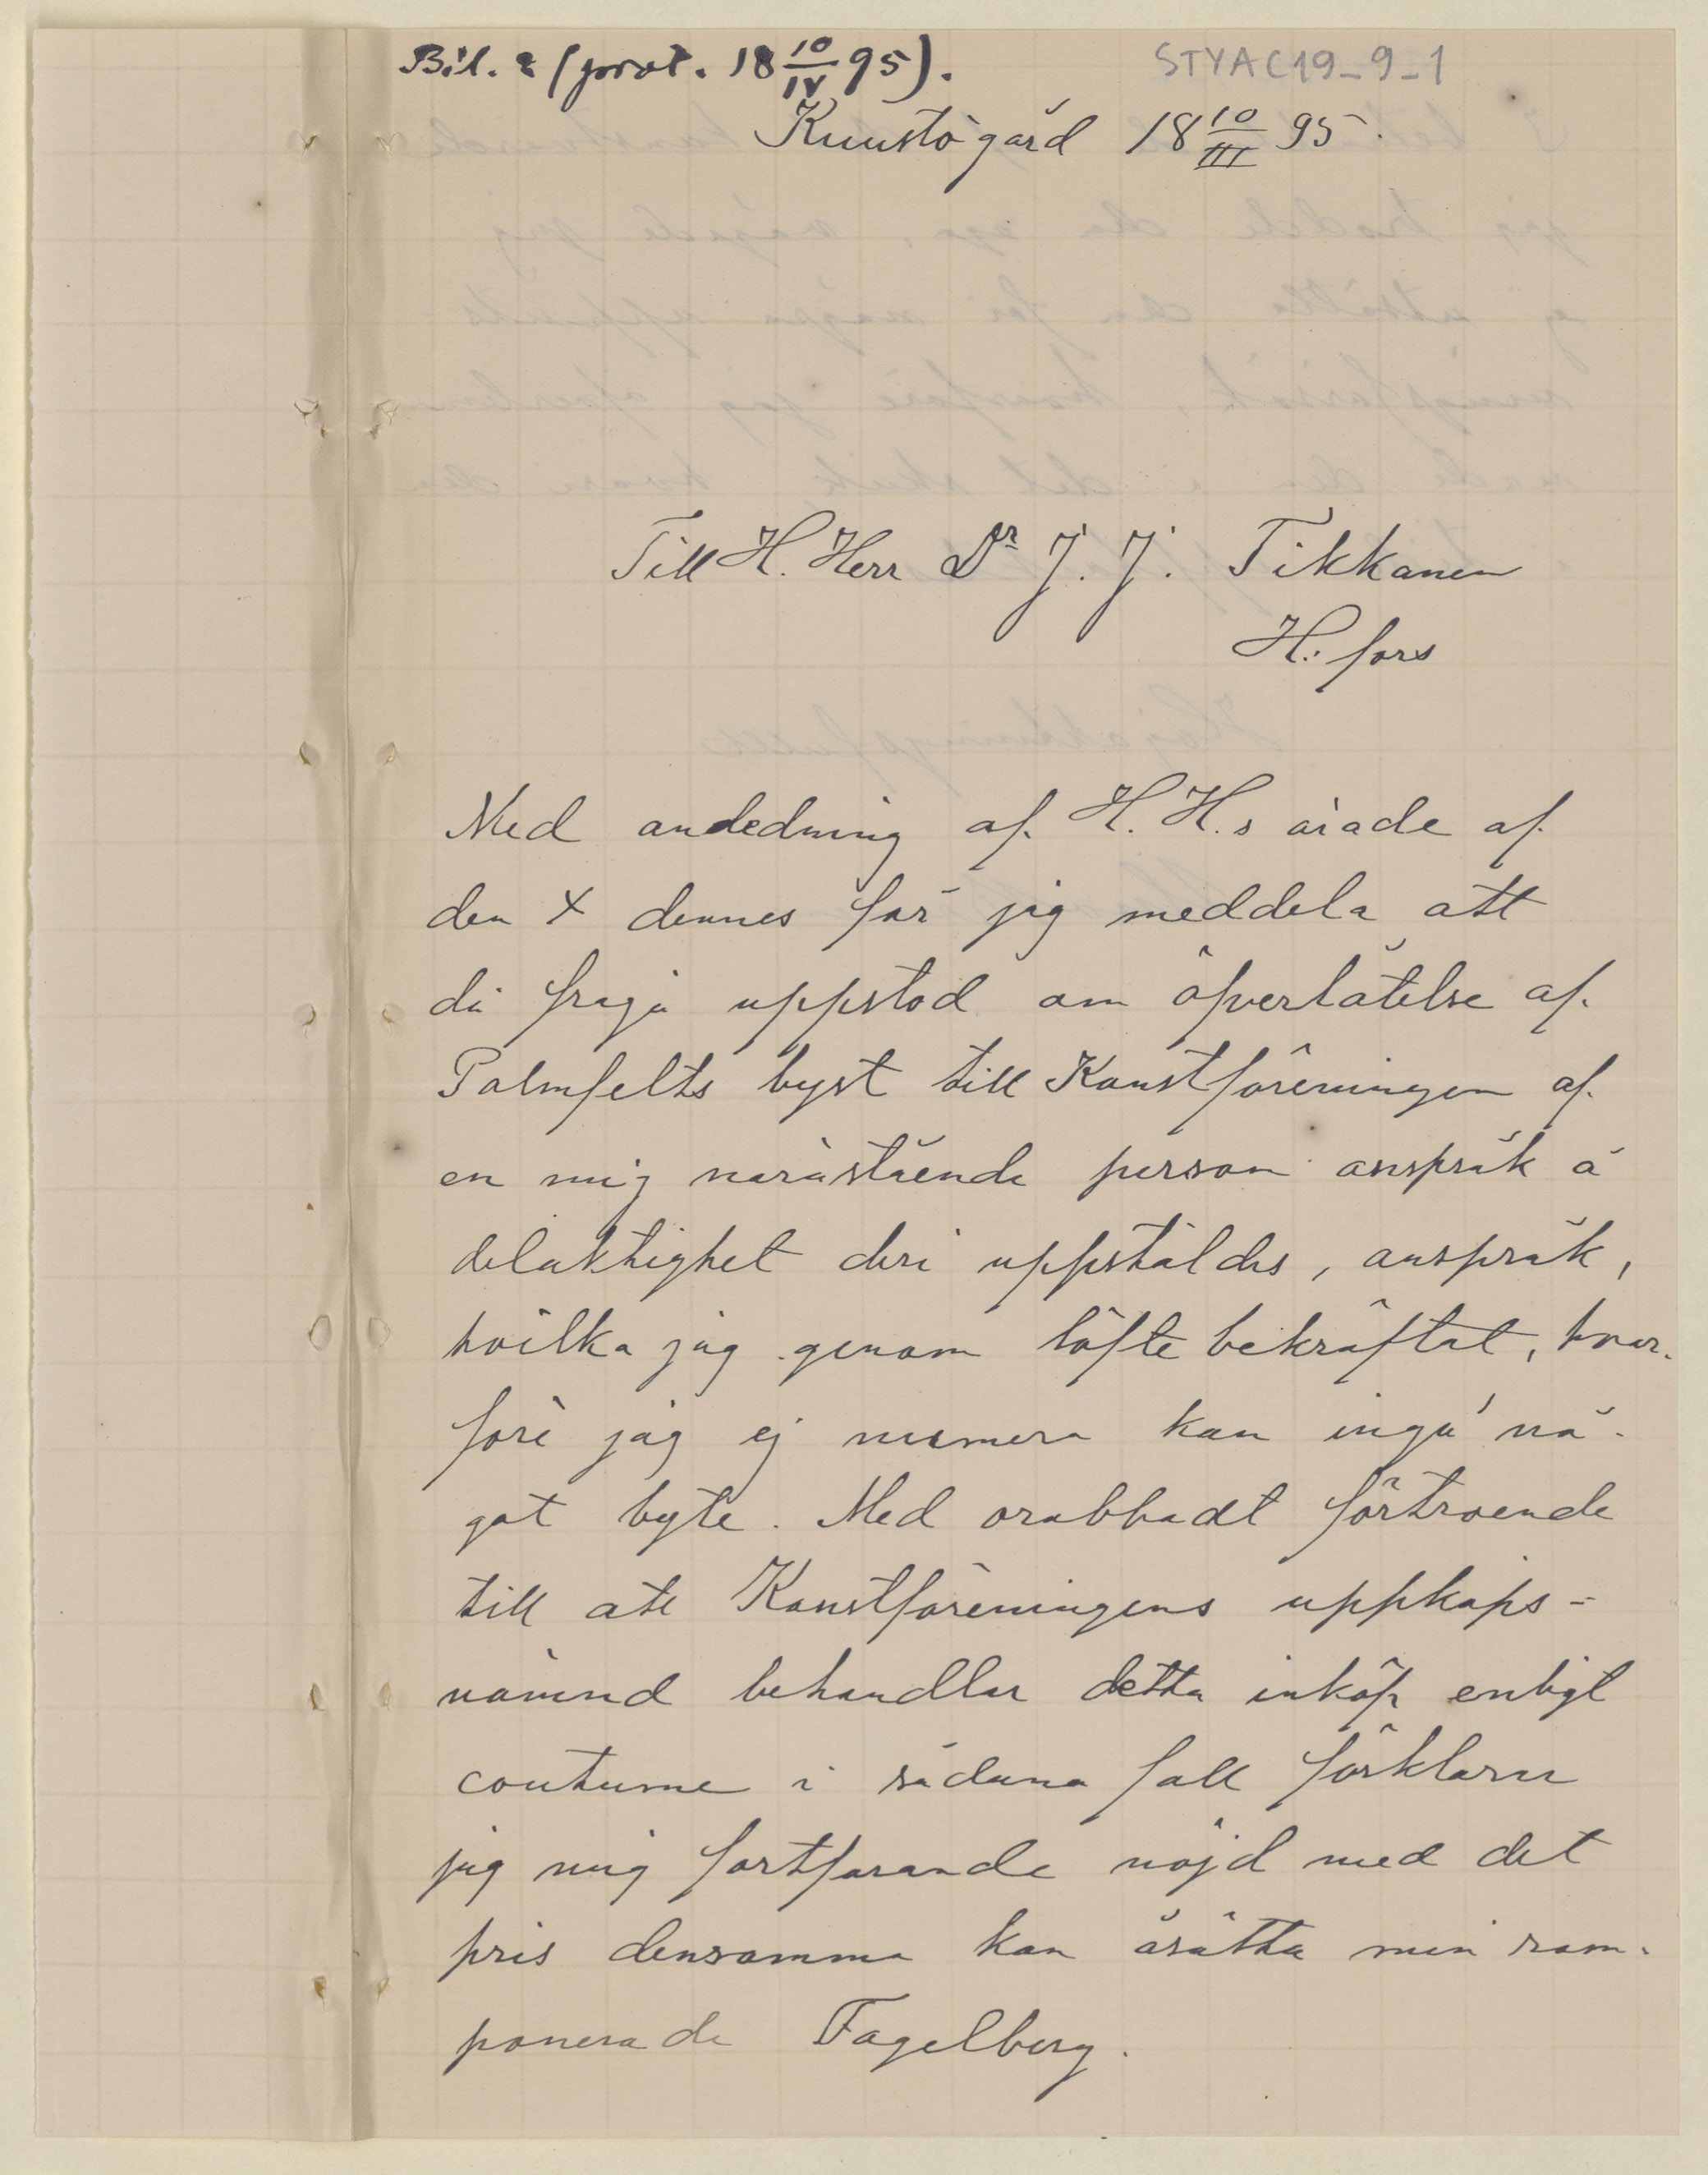 Bil. 2 (prot. 18 10/IV 95).
STYA C19_9_1
Kuustö gård 18 10/III 95.
Till H. Herr Dr J. J. Tikkanen
H:fors
Med anledning af H. H.s ärade af
den X dennes får jag meddela att
då fråga uppstod om öfverlåtelse af
Palmfelts byst till Konstföreningen af
en mig närastående person anspråk å
delaktighet deri uppstäldes, anspråk,
hvilka jag genom löfte bekräftat, hvar-
före jag ej numera kan ingå nå-
got byte. Med orubbadt förtroende
till att Konstföreningens uppköps-
nämnd behandlar detta inköp enligt
coutume i sådana fall förklarar
jag mig fortfarande nöjd med det
pris densamma kan åsätta min ram-
ponerade Fagelberg.